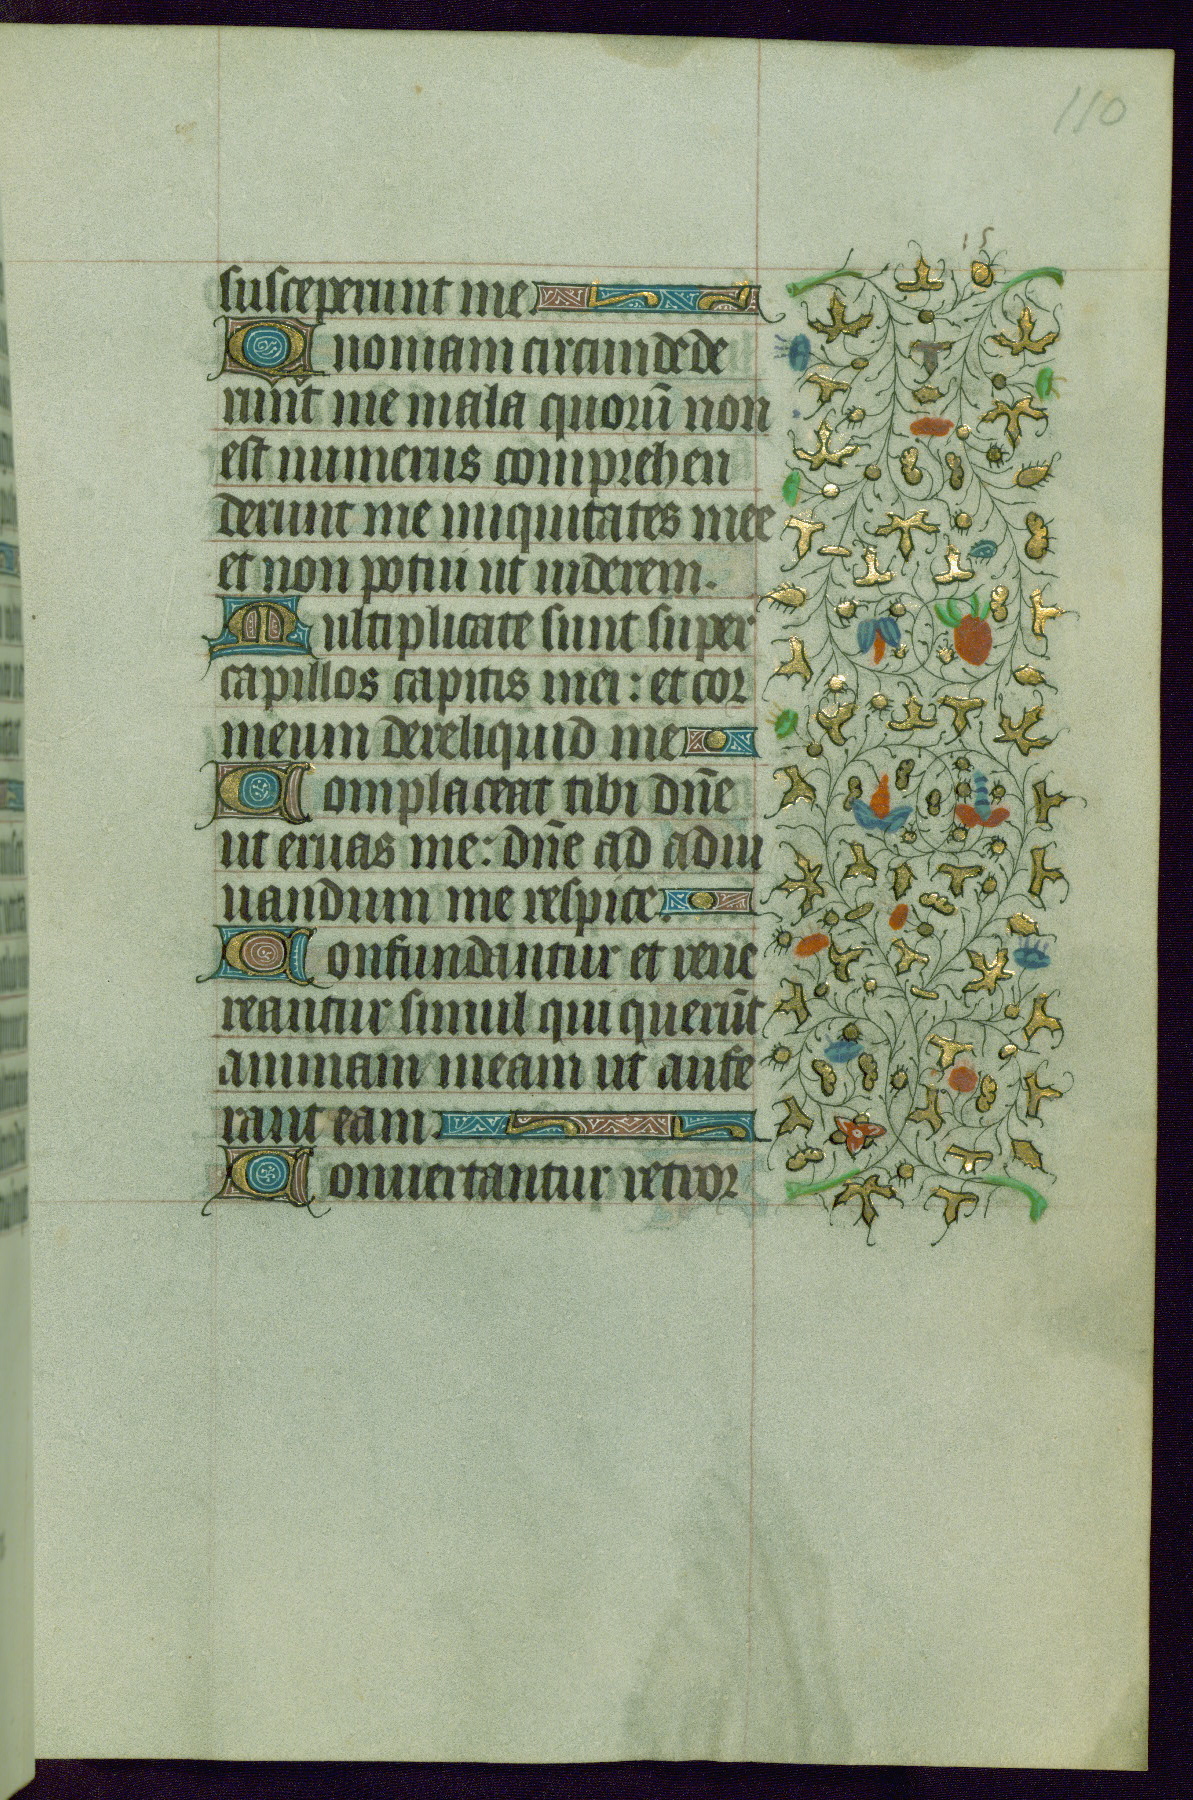 110
15
susceperunt me
Quoniam circumdede
runt me mala quorū non
est numerus comprehen
derunt me iniquitates mee
et non potui ut viderem.
Multiplicate sunt super
capillos capitis mei: et cor
meum dereliquid me
Complaceat tibi dn̄e
ut eruas me: dn̄e ad adiu
uandum me respice.
Confundantur et reue
reantur simul qui querūt
animam meam ut aufe
rant eam.
Conuertantur retror